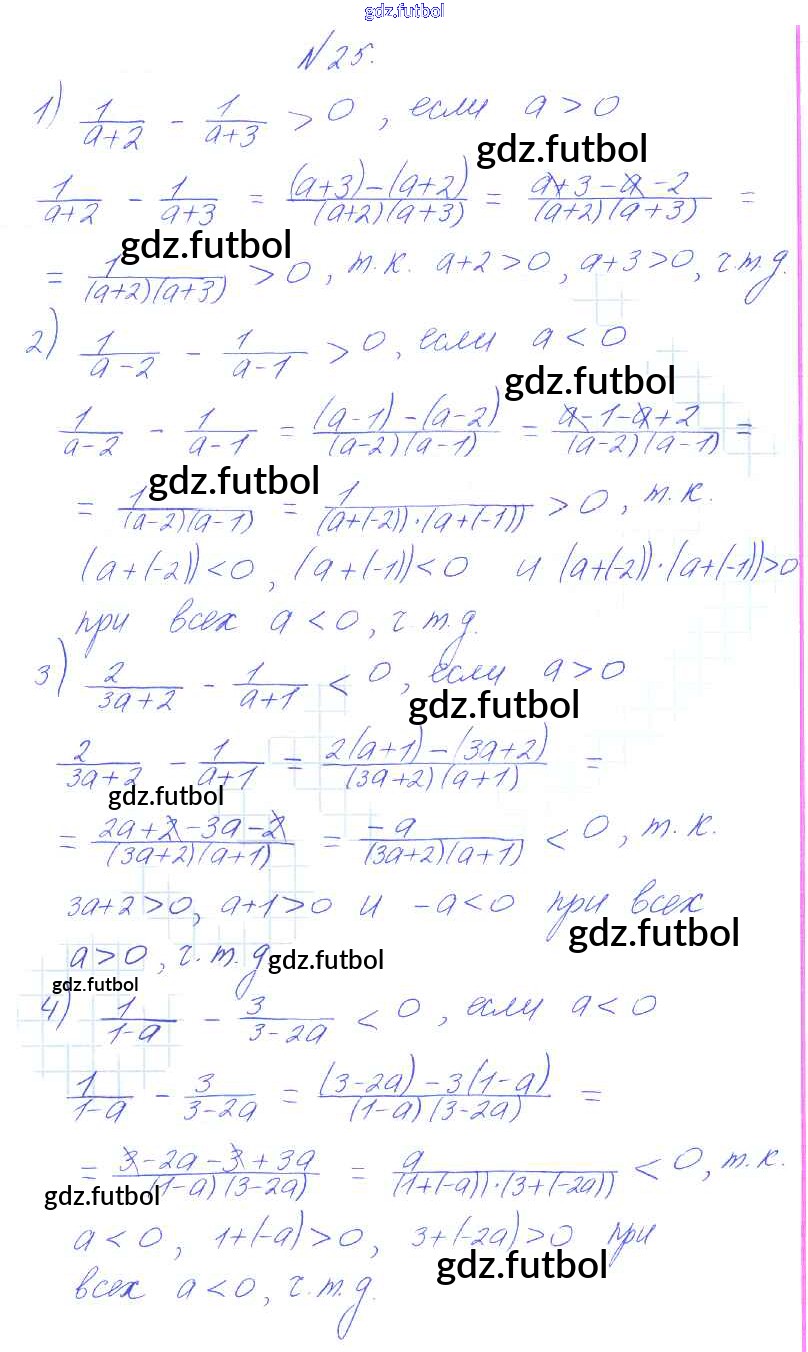 gdz.futbol
№25.
1) 1/(a+2) - 1/(a+3) > 0, если a > 0
gdz.futbol
1/(a+2) - 1/(a+3) = ((a+3)-(a+2))/((a+2)(a+3)) = (a+3-a-2)/((a+2)(a+3)) =
gdz.futbol
= 1/((a+2)(a+3)) > 0, т.к. a+2>0, a+3>0, ч.т.д.
2) 1/(a-2) - 1/(a-1) > 0, если a < 0
gdz.futbol
1/(a-2) - 1/(a-1) = ((a-1)-(a-2))/((a-2)(a-1)) = (a-1-a+2)/((a-2)(a-1)) =
gdz.futbol
= 1/((a-2)(a-1)) = 1/((a+(-2))·(a+(-1))) > 0, т.к.
(a+(-2))<0, (a+(-1))<0 и (a+(-2))·(a+(-1))>0
при всех a<0, ч.т.д.
3) 2/(3a+2) - 1/(a+1) < 0, если a>0
gdz.futbol
2/(3a+2) - 1/(a+1) = (2(a+1)-(3a+2))/((3a+2)(a+1)) =
gdz.futbol
= (2a+2-3a-2)/((3a+2)(a+1)) = -a/((3a+2)(a+1)) < 0, т.к.
3a+2>0, a+1>0 и -a<0 при всех
gdz.futbol
a>0, ч.т.д
gdz.futbol
gdz.futbol
4) 1/(1-a) - 3/(3-2a) < 0, если a<0
1/(1-a) - 3/(3-2a) = ((3-2a)-3(1-a))/((1-a)(3-2a)) =
= (3-2a-3+3a)/((1-a)(3-2a)) = a/((1+(-a))·(3+(-2a))) < 0, т.к.
gdz.futbol
a<0, 1+(-a)>0, 3+(-2a)>0 при
gdz.futbol
всех a<0, ч.т.д.